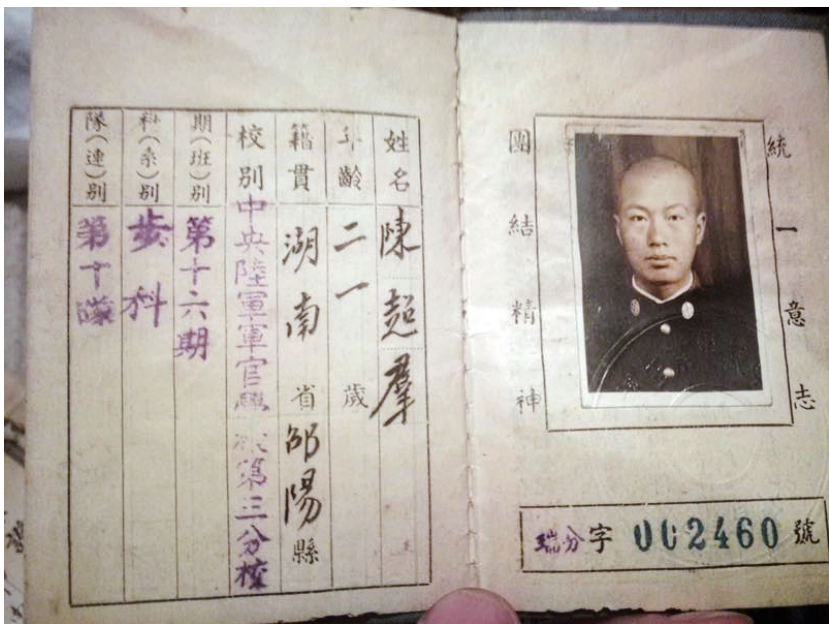 統一意志
團結精神
瑞分字 002460 號
姓名 陳超羣
年齡 二一歲
籍貫 湖南省邵陽縣
校別 中央陸軍軍官學校第三分校
期(班)別 第十六期
科(系)別 步科
隊(連)別 第十隊